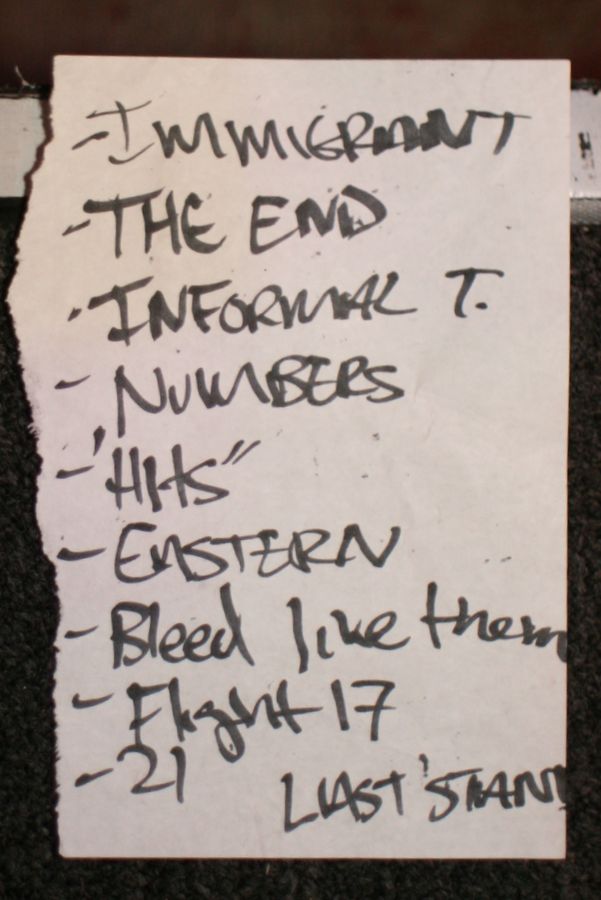 - IMMIGRANT
- THE END
- INFORMAL T.
- NUMBERS
- "HITS"
- EASTERN
- Bleed like them
- Flight 17
- 21 LAST STAN